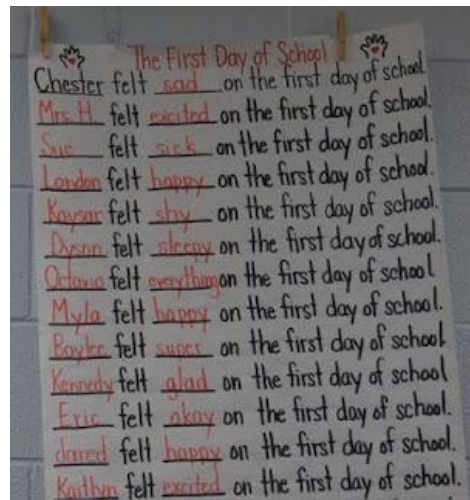 The First Day of School
Chester felt sad on the first day of school.
Mrs. H. felt excited on the first day of school.
Sue felt sick on the first day of school.
London felt happy on the first day of school.
Kaysar felt shy on the first day of school.
Dyson felt sleepy on the first day of school.
Octavia felt everything on the first day of school
Myla felt happy on the first day of school.
Baylee felt super on the first day of school
Kennedy felt glad on the first day of school.
Eric felt okay on the first day of school.
Jared felt happy on the first day of school.
Kaitlyn felt excited on the first day of school.